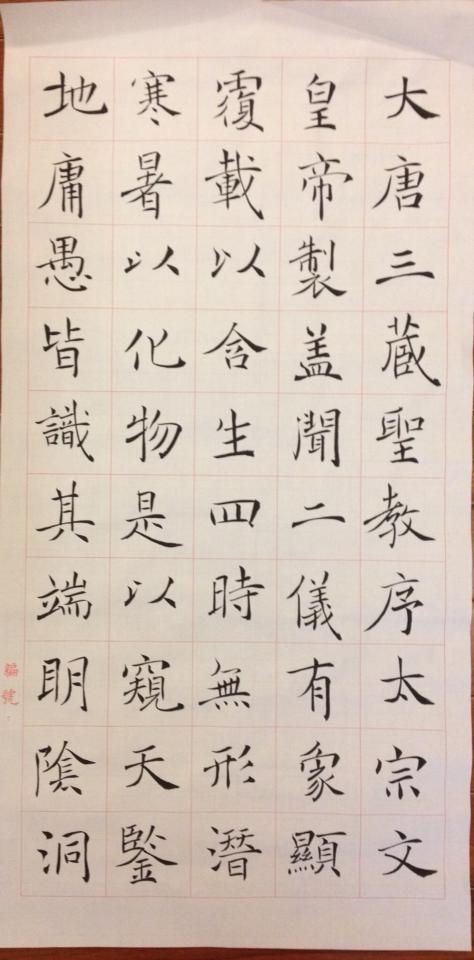 大唐三藏聖教序太宗文
皇帝製盖聞二儀有象顯
覆載以含生四時無形潛
寒暑以化物是以窺天鑒
地庸愚皆識其端明陰洞
編號：